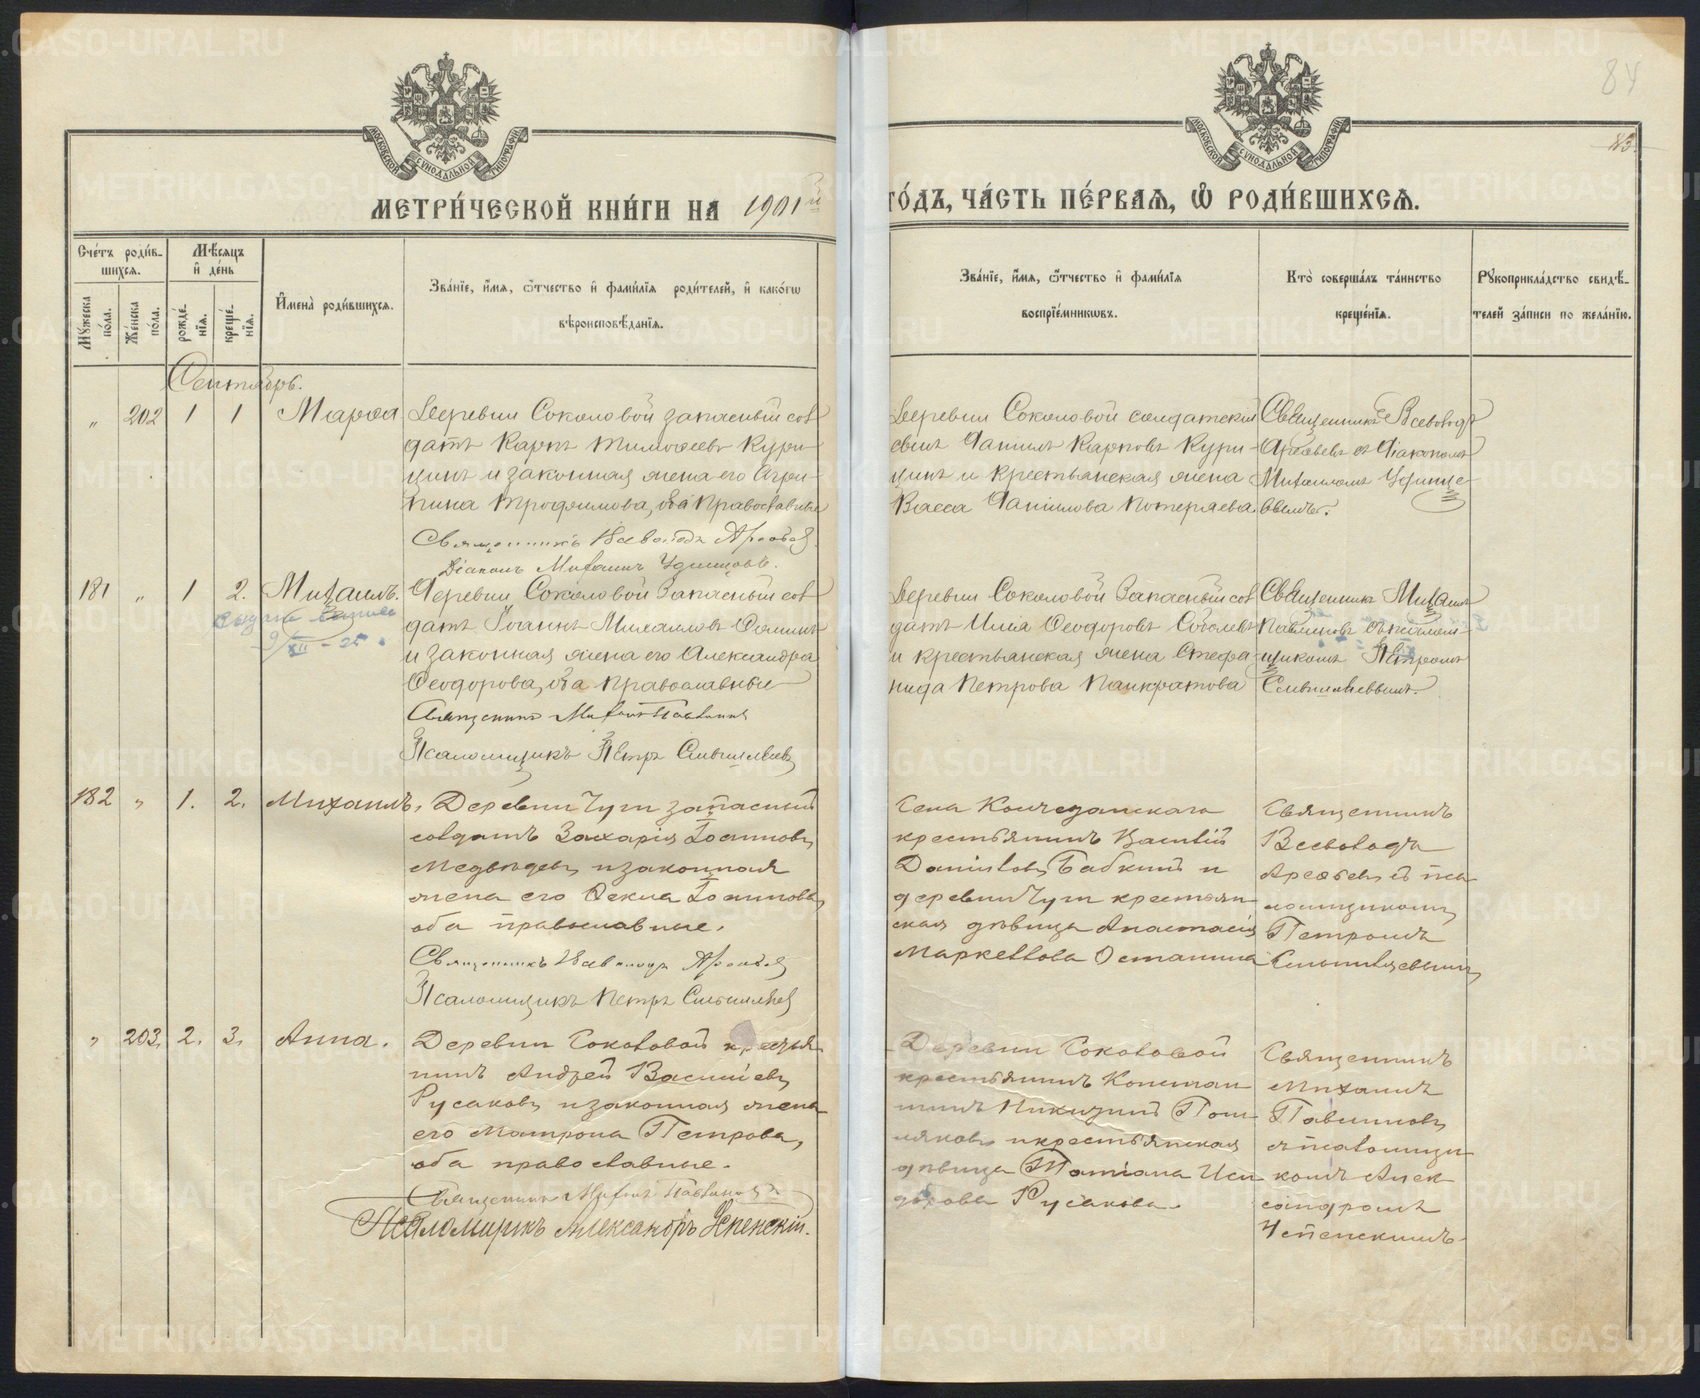 84
83.
МОСКОВСКОЙ СУНОДАЛЬНОЙ ТИПОГРАФІИ
МОСКОВСКОЙ СУНОДАЛЬНОЙ ТИПОГРАФІИ
МЕТРИ́ЧЕСКОЙ КНИ́ГИ НА 1901й
ГО́ДЪ, ЧА́СТЬ ПЕ́РВАѦ, Ѡ РОДИ́ВШИХСѦ.
Сче́тъ роди́в-
шихсѧ.
Мꙋ́жеска
по́ла.
Же́нска
по́ла.
Мѣ́сѧцъ
и҆ де́нь
рожде́-
нїѧ.
креще́-
нїѧ.
И҆мена̀ роди́вшихсѧ.
Зва́нїе, и҆́мѧ, ѻ҆́тчество и҆ фами́лїѧ роди́телей, и҆ како́гѡ
вѣроисповѣ́данїѧ.
Зва́нїе, и҆́мѧ, ѻ҆́тчество и҆ фами́лїѧ
воспрїе́мникѡвъ.
Кто̀ соверша́лъ та́инство
креще́нїѧ.
Рꙋкоприкла́дство свидѣ́-
телей за́писи по жела́нїю.
Сентябрь.
„ 202 1 1 Марѳа
Деревни Соколовой запасный сол
датъ Карпъ Тимоѳеевъ Кури-
цинъ и законная жена его Агри-
пина Трофимова, оба Православные
Священникъ Всеволодъ
Діаконъ Михаилъ Удинцовъ.
Деревни Соколовой солдатскій
сынъ Даніилъ Карповъ Кури-
цинъ и крестьянская жена
Васса Даніилова Потеряева.
Священникъ Всеволодъ
съ Діакономъ
Михаиломъ Удинце-
вымъ.
181 „ 1 2. Михаилъ.
9/XII – 25
Деревни Соколовой Запасный сол
датъ Іоаннъ Михаиловъ Ѳоминъ
и законная жена его Александра
Ѳеодорова, оба Православные
Священникъ Михаилъ
Псаломщикъ Петръ
Деревни Соколовой Запасный сол
датъ Илія Ѳеодоровъ Соболевъ
и крестьянская жена Стефа-
нида Петрова Панкратова
Священникъ Михаилъ
съ псалом-
щикомъ Петромъ
182 „ 1. 2. Михаилъ.
Деревни Чуги запасный
солдатъ Захарія Іоанновъ
Медвѣдевъ и законная
жена его Ѳекла Іоаннова,
оба православные.
Священникъ Всеволодъ
Псаломщикъ Петръ
Села Колчеданскаго
крестьянинъ Василій
Данииловъ Бабкинъ и
деревни Чуги крестьян
ская дѣвица Анастасія
Маркеллова Останина
Священникъ
Всеволодъ
съ пса
ломщикомъ
Петромъ
„ 203. 2. 3. Анна.
Деревни Соколовой крестья
нинъ Андрей Василіевъ
Русаковъ и законная жена
его Матрона Петрова,
оба православные.
Священникъ Михаилъ
Псаломщикъ Александръ Успенскій.
Деревни Соколовой
крестьянинъ Констан
тинъ
и крестьянская
дѣвица Татіана Иси
дорова Русакова.
Священникъ
Михаилъ
съ псаломщи
комъ Алек
сандромъ
Успенскимъ.
METRIKI.GASO-URAL.RU